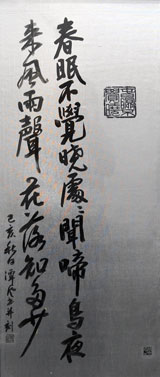 春眠不覺曉處〻聞啼鳥夜
来風雨聲花落知多少
己亥秋白潭